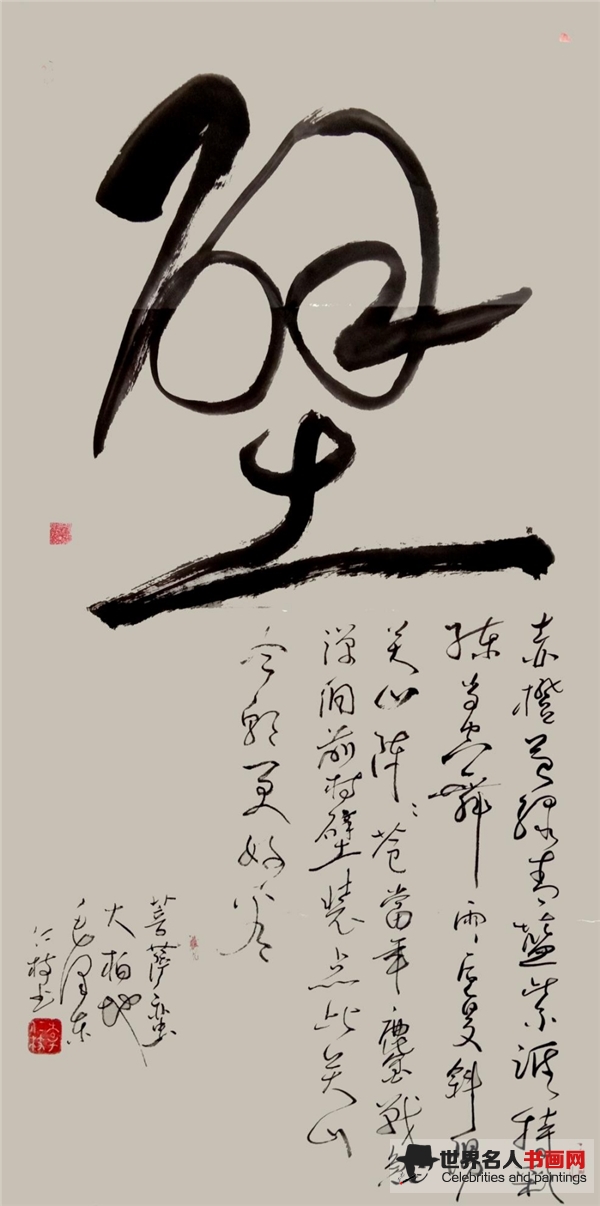 壁
赤橙黄绿青藍紫谁持彩
练当空舞雨后复斜阳
关山阵々苍當年鏖战急
弹洞前村壁装点此关山
今朝更好看
菩萨蛮
大柏地
毛泽东
仁枝书
世界名人书画网
Celebrities and paintings